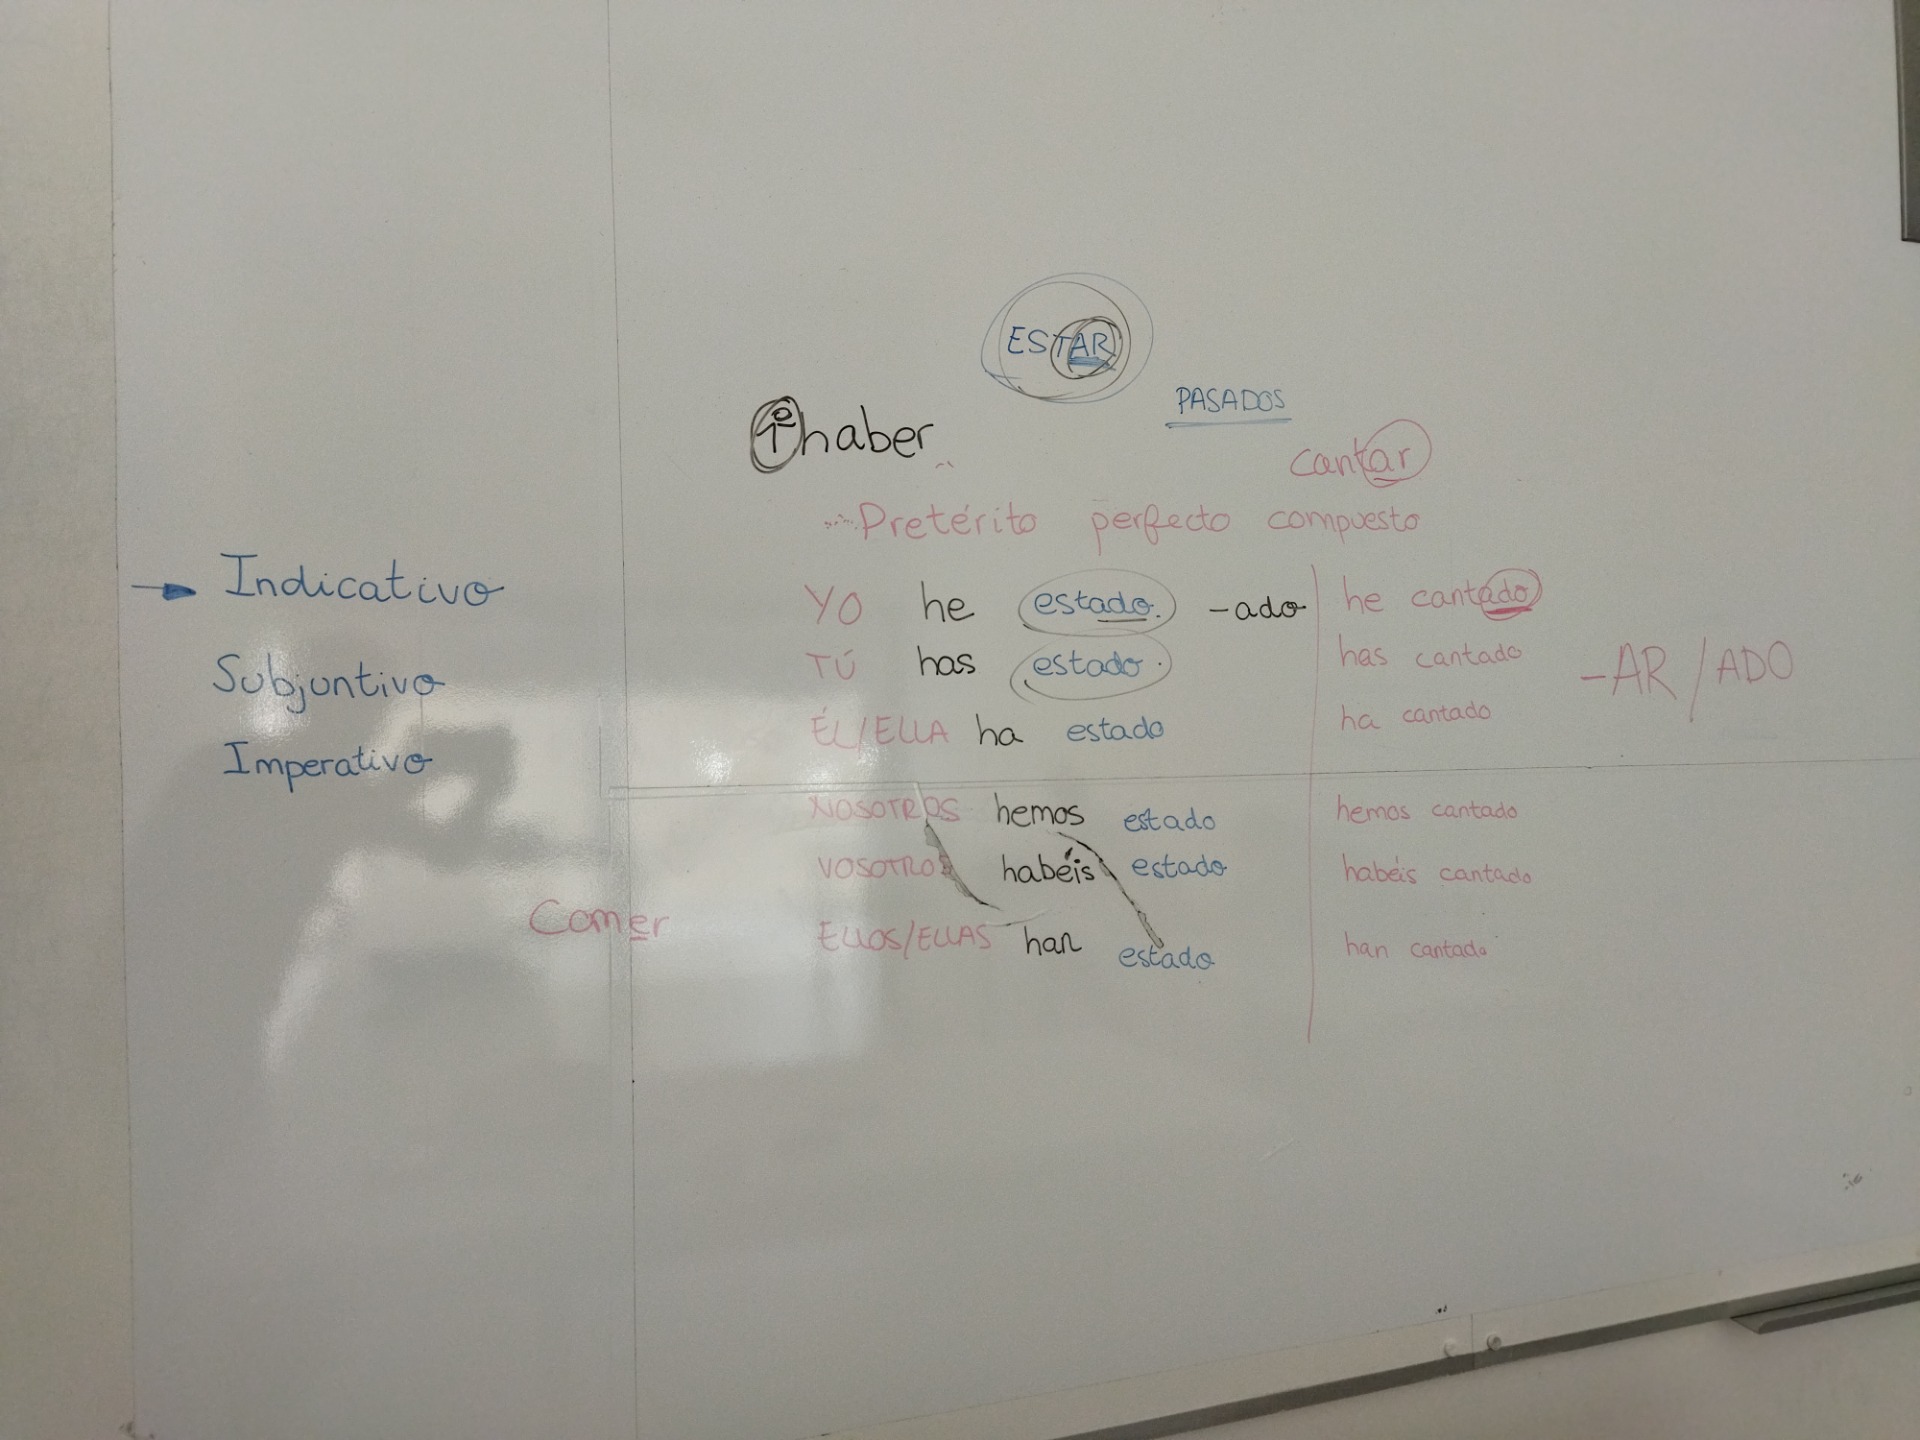 ESTAR
PASADOS
1º haber
cantar
Pretérito perfecto compuesto
→ Indicativo
Subjuntivo
Imperativo
YO he estado. -ado he cantado
TÚ has estado. has cantado -AR / ADO
ÉL/ELLA ha estado ha cantado
NOSOTROS hemos estado hemos cantado
VOSOTROS habéis estado habéis cantado
Comer
ELLOS/ELLAS han estado han cantado